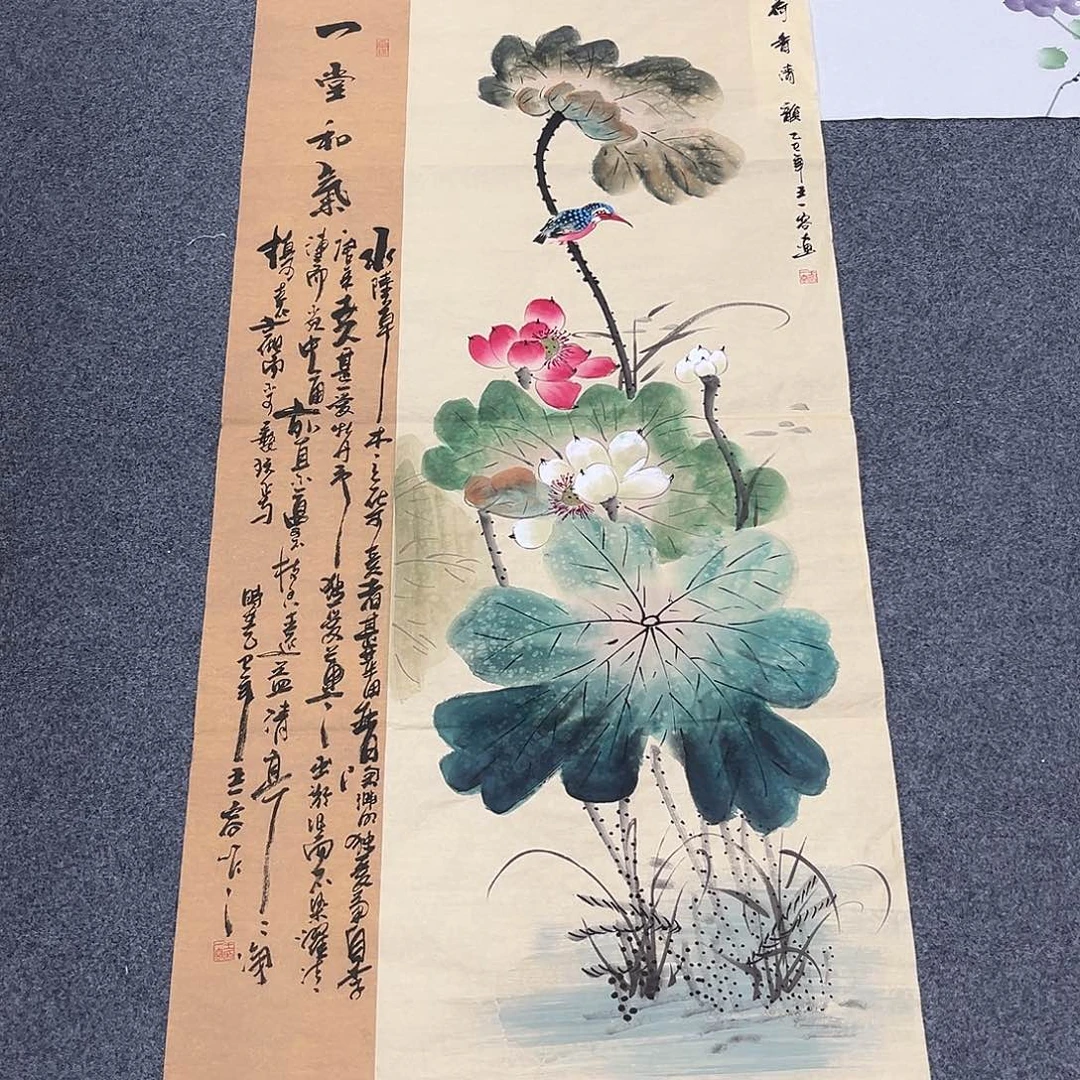 荷香清韻 乙巳年王一容畫
一堂和氣
水陸草木之花愛者甚蕃淵明独愛菊自李
唐來甚愛牡丹予独愛蓮之出淤泥而不染濯清
漣而不妖中通外直不蔓不枝香遠益清亭亭淨
植可遠觀而不可褻玩焉 乙巳年王一容作